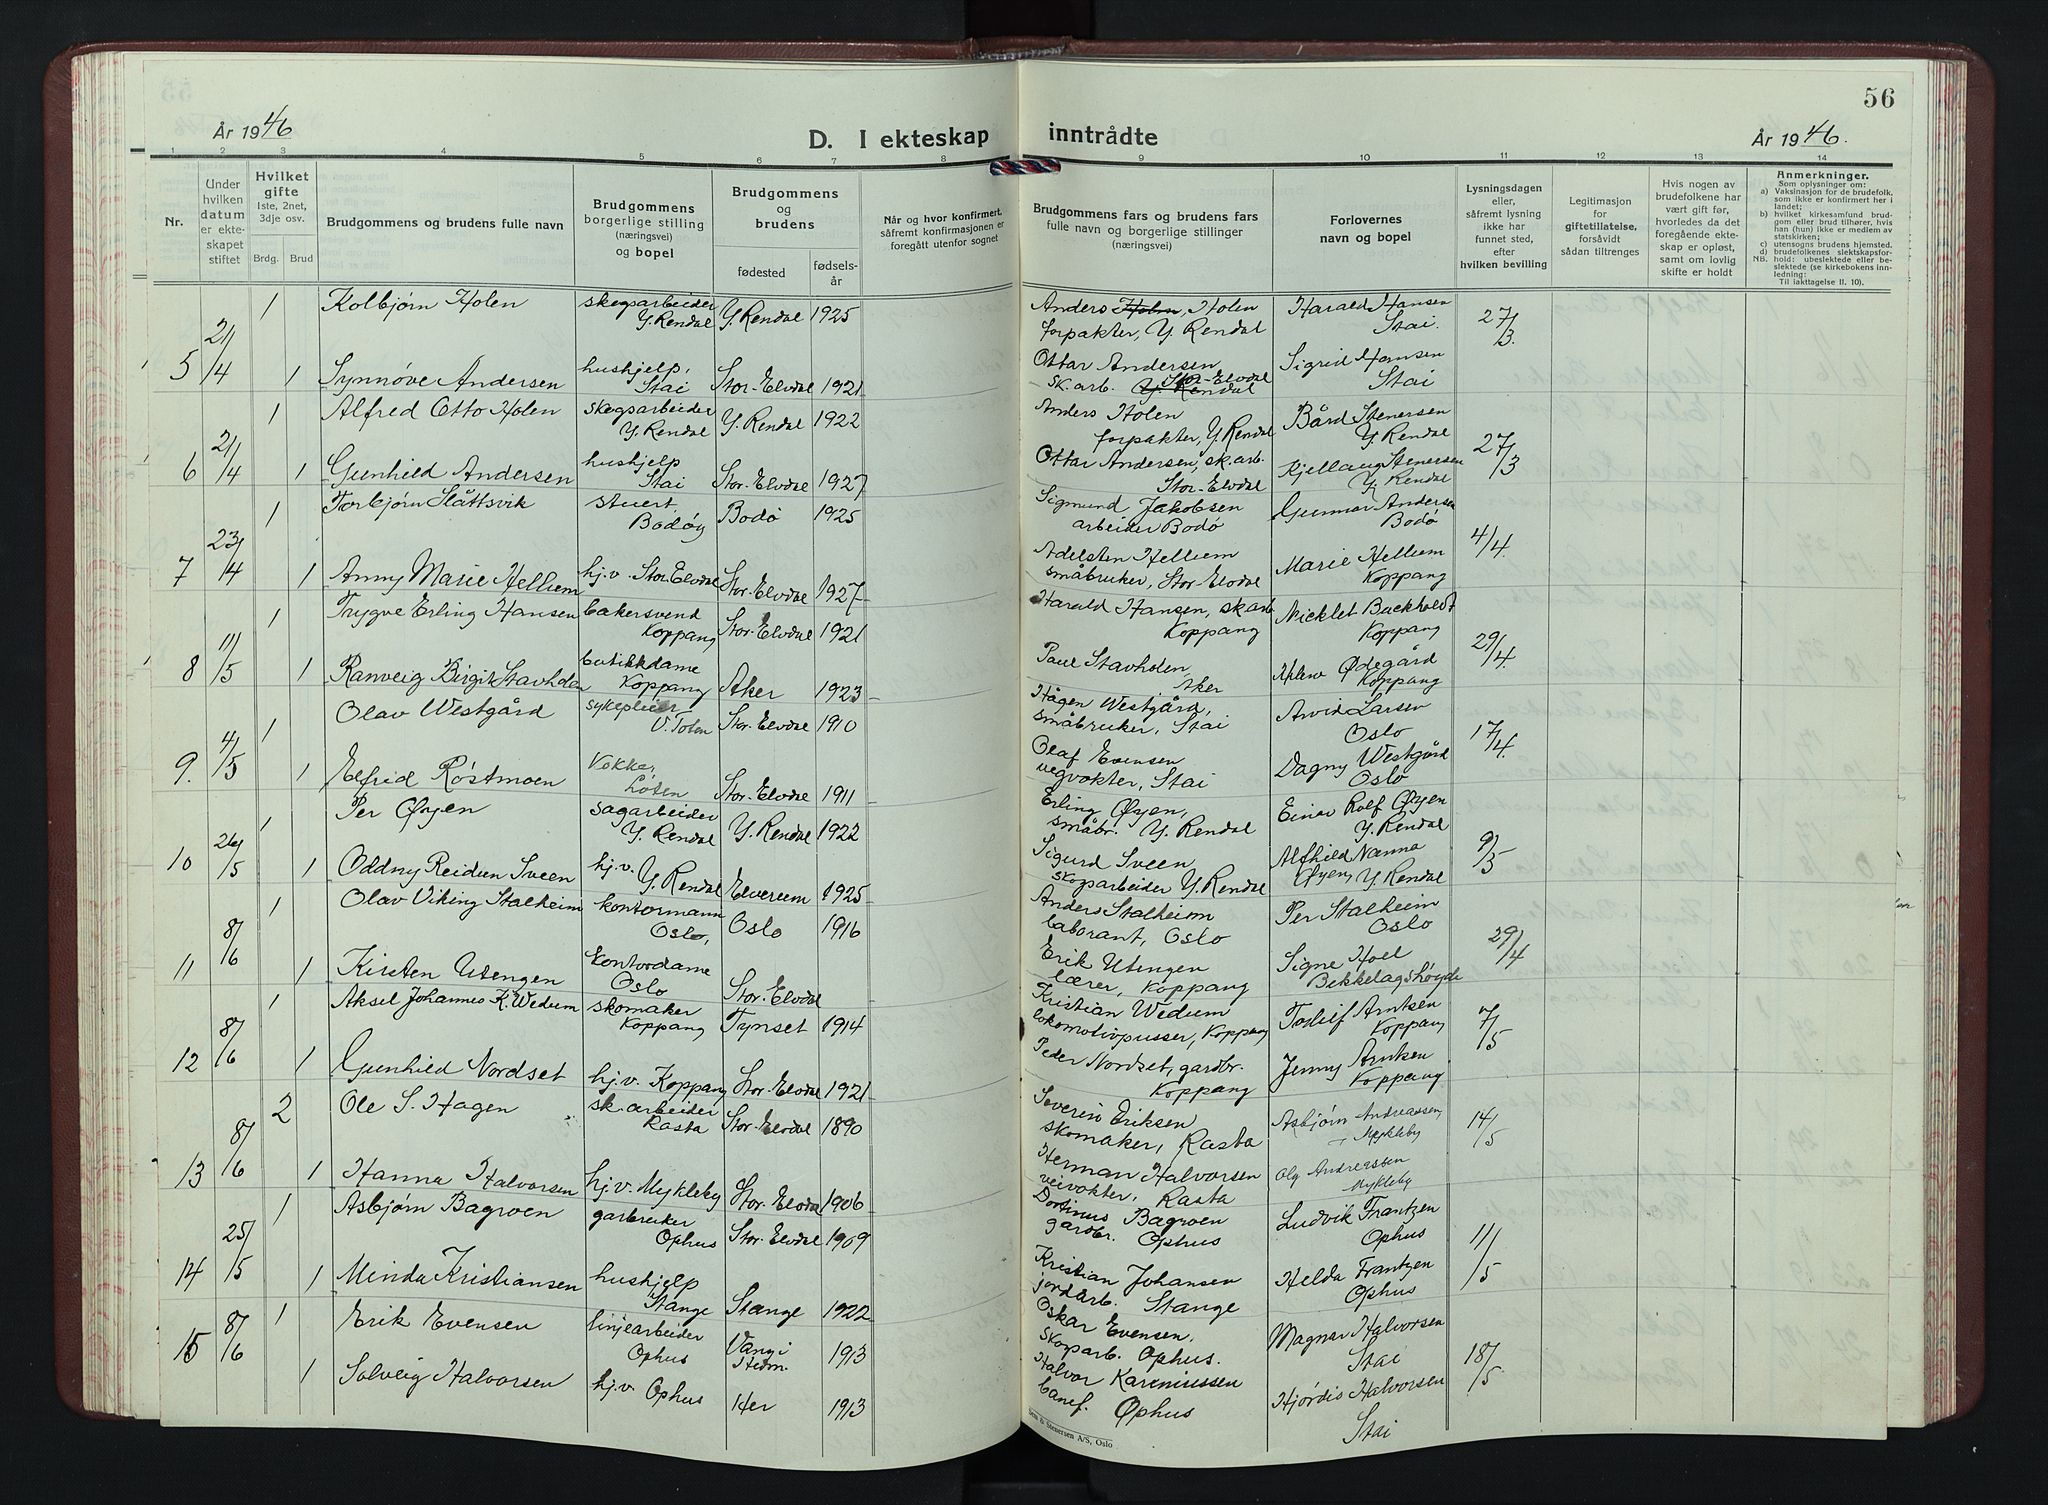 56
År 1946
D. I ekteskap inntrådte
År 1946.
1 2 3 4 5 6 7 8 9 10 11 12 13 14
Nr.
Under hvilken datum er ekteskapet stiftet
Hvilket gifte 1ste, 2net, 3dje osv.
Brdg. Brud
Brudgommens og brudens fulle navn
Brudgommens borgerlige stilling (næringsvei) og bopel
Brudgommens og brudens
fødested
fødselsår
Når og hvor konfirmert, såfremt konfirmasjonen er foregått utenfor sognet
Brudgommens fars og brudens fars fulle navn og borgerlige stillinger (næringsvei)
Forlovernes navn og bopel
Lysningsdagen eller, såfremt lysning ikke har funnet sted, efter hvilken bevilling
Legitimasjon for giftetillatelse, forsåvidt sådan tiltrenges
Hvis nogen av brudefolkene har vært gift før, hvorledes da det foregående ekteskap er opløst, samt om lovlig skifte er holdt
Anmerkninger.
Som oplysninger om:
a) Vaksinasjon for de brudefolk, som ikke er konfirmert her i landet;
b) hvilket kirkesamfund brudgom eller brud tilhører, hvis han (hun) ikke er medlem av statskirken;
c) utensogns brudens hjemsted.
d) brudefolkenes slektskapsforhold: ubeslektede eller beslektede (se kirkebokens innledning:
NB.
Til iakttagelse II. 10).
1 Kolbjørn Holen skogsarbeider Y. Rendal Y. Rendal 1925 Anders Holen, Holen forpakter, Y. Rendal Harald Hansen Stai. 27/3.
5 21/4 1 Synnøve Andersen hushjelp, Stai Stor-Elvdal 1921 Ottar Andersen sk.arb. Y. Rendal Stor-Elvdal Sigrid Hansen Stai
1 Alfred Otto Holen skogsarbeider Y. Rendal Y. Rendal 1922 Anders Holen forpakter, Y. Rendal Bård Stenersen Y. Rendal 27/3
6 21/4 1 Gunhild Andersen hushjelp Stai Stor-Elvdal 1927 Ottar Andersen, sk.arb. Stor-Elvdal Kjellaug Stenersen Y. Rendal
1 Torbjørn Slåttsvik stuert, Bodø Bodø 1925 Sigmund Jakobsen arbeider Bodø Gunnar Andersen Bodø 4/4.
7 23/4 1 Anny Marie Hellum hj.v. Stor-Elvdal Stor-Elvdal 1927 Adelsten Hellum småbruker, Stor-Elvdal Marie Hellum Koppang
1 Trygve Erling Hansen bakersvend Koppang Stor-Elvdal 1921 Harald Hansen, sk.arb Koppang Nicklet Backholdt Koppang 29/4.
8 11/5 1 Ranveig Birgit Stavhden butikkdame Koppang Aker 1923 Paul Stavhden, Aker Ødegård Koppang
1 Olav Westgård sykepleier V. Toten Stor-Elvdal 1910 Hågen Westgård, småbruker, Stai Arvid Larsen Oslo 17/4.
9. 4/5 1 Elfrid Røstmoen Løten Stor-Elvdal 1911 Olaf Evensen vegvokter, Stai Dagny Westgård Oslo
1 Per Øyen sagarbeider Y. Rendal Y. Rendal 1922 Erling Øyen, småbr. Y. Rendal Einar Rolf Øyen Y. Rendal 9/5
10 26/5 1 Oddny Reidun Sveen hj.v. Y. Rendal Elverum 1925 Sigurd Sveen skogarbeider Y. Rendal Alfhild Nanna Øyen, Y. Rendal
1 Olav Viking Stalheim kontormann Oslo, Oslo 1916 Anders Stalheim laborant, Oslo Per Stalheim Oslo 29/4
11 8/6 1 Kirsten Utengen kontordame Oslo Stor-Elvdal Erik Utengen lærer, Koppang Signe Hoel Bekkelagshøyde
1 Aksel Johannes K. Wedum skomaker Koppang Tynset 1914 Kristian Wedum lokomotivpusser, Koppang Tollif Arntsen Koppang 7/5
12 8/6 1 Gunhild Nordset hj.v. Koppang Stor-Elvdal 1921 Peder Nordset, gardbr. Koppang Jenny Arntsen Koppang
2 Ole S. Hagen sk.arbeider Rasta Stor-Elvdal 1890 Severin Eriksen skomaker, Rasta Asbjørn Andreassen, Mykleby 14/5
13 8/6 1 Hanna Halvorsen hj.v. Mykleby Stor-Elvdal 1906 Herman Halvorsen veivokter, Rasta Olg Andreassen Mykleby
1 Asbjørn Bagroen garbruker Ophus Stor-Elvdal 1909 Dortinus Bagroen gardbr. Ophus Ludvik Frantzen Ophus 11/5
14 25/5 1 Minda Kristiansen hushjelp Stange Stange 1922 Kristian Johansen jordarb. Stange Helda Frantzen Ophus
1 Erik Evensen linjearbeider Ophus Vang i Hedm. 1913 Oskar Evensen, skogarb. Ophus. Magnar Halvorsen Stai 18/5
15 8/6 1 Solveig Halvorsen hj.v. Ophus Her 1913 Halvor Kareniussen Ophus Hjørdis Halvorsen Stai
Sem & Stenersen A/S, Oslo